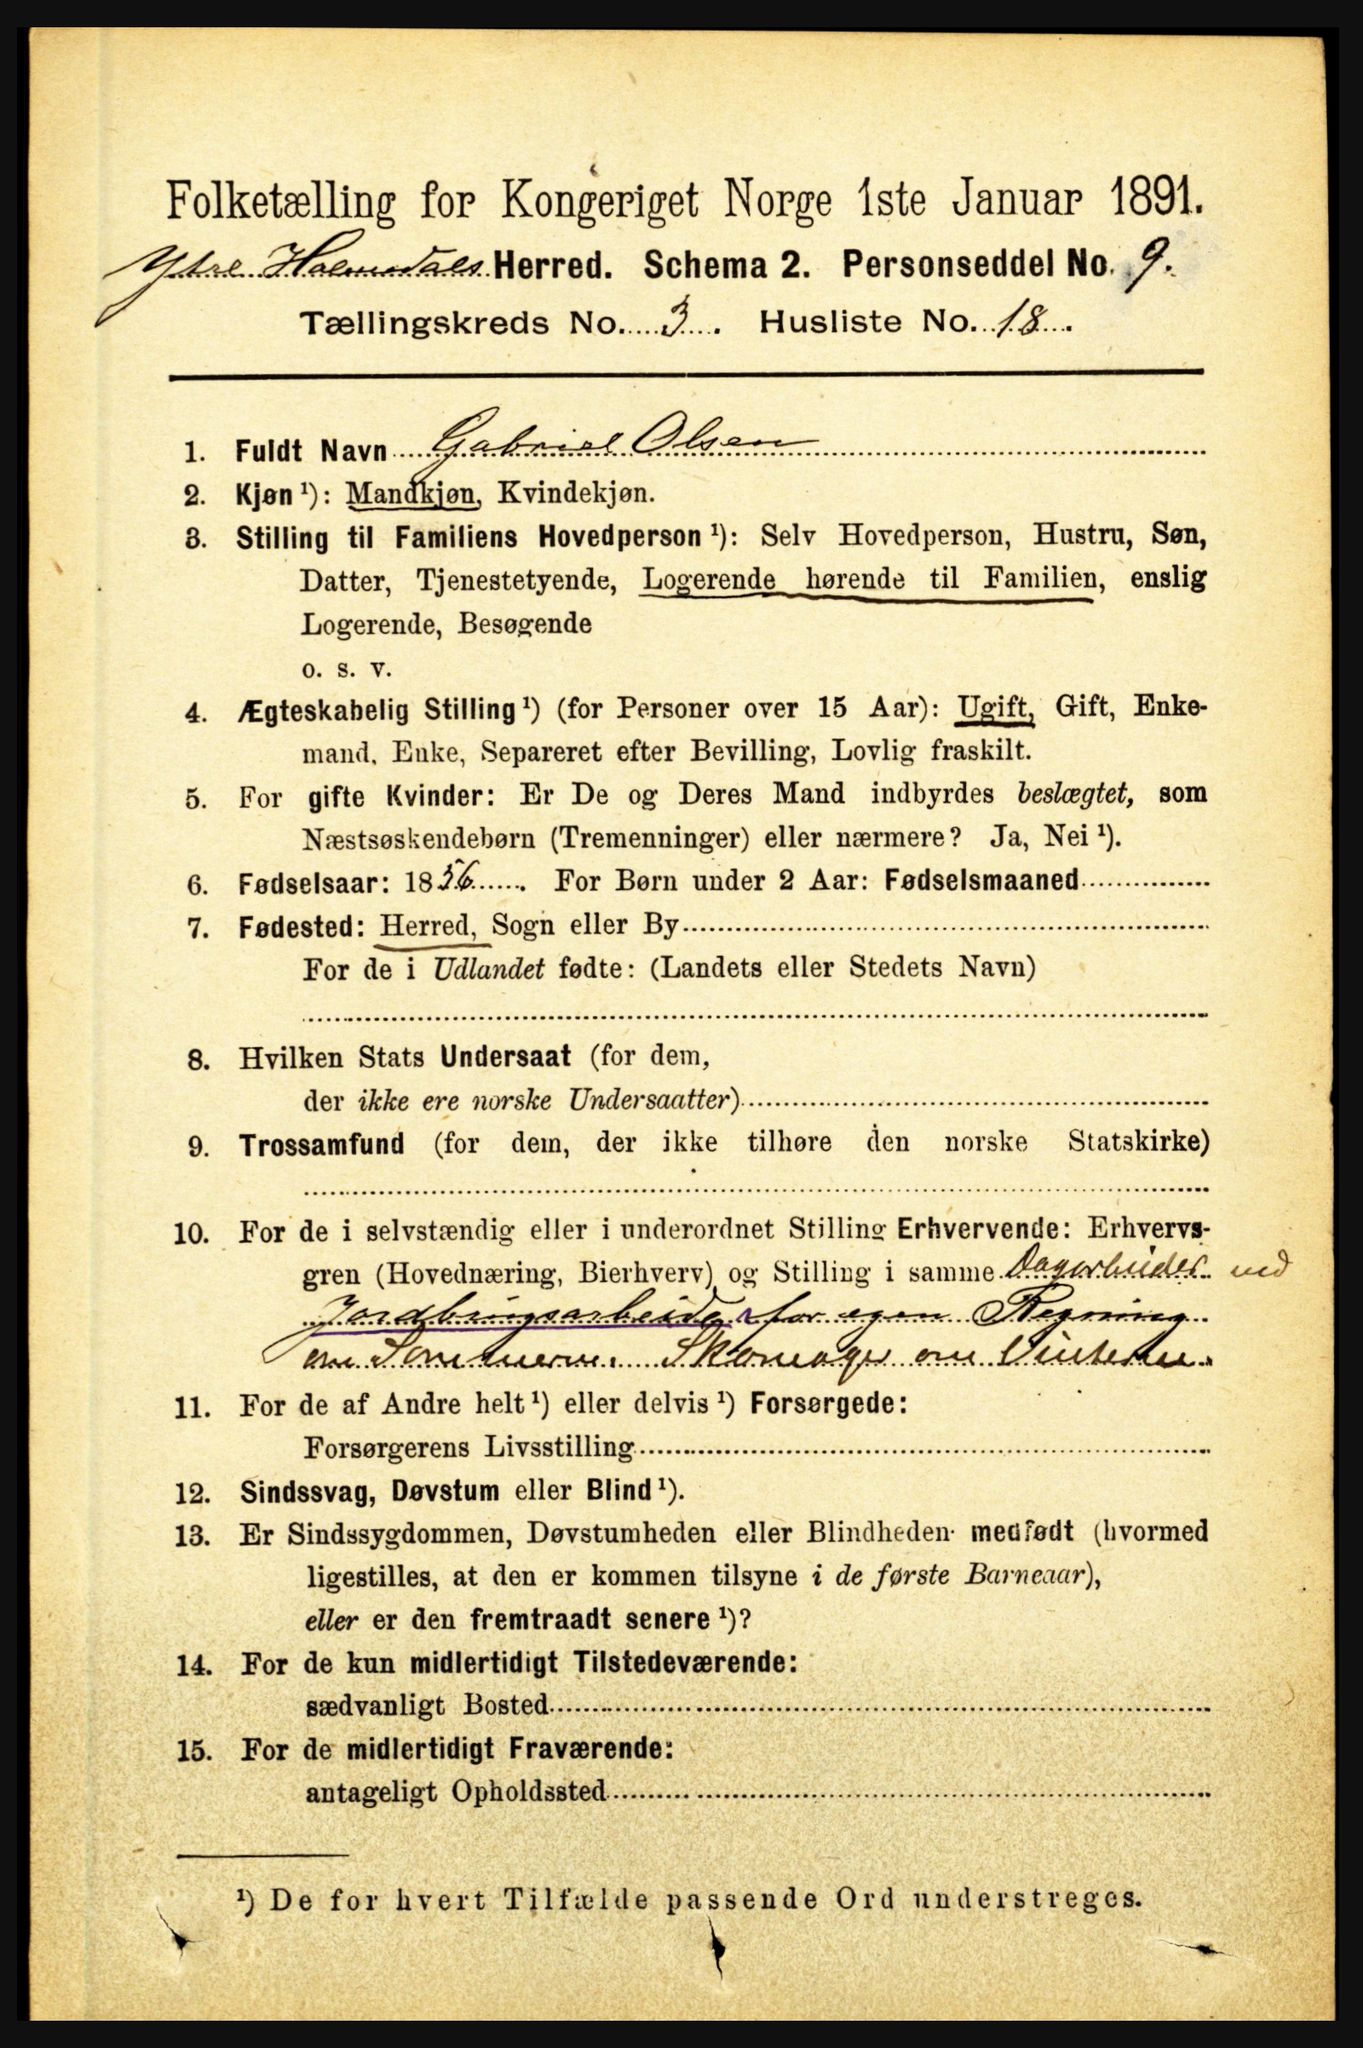 Folketælling for Kongeriget Norge 1ste Januar 1891.
Ytre Holmedals Herred. Schema 2. Personseddel No. 9.
Tællingskreds No. 3. Husliste No. 18.
1. Fuldt Navn Gabriel Olsen
2. Kjøn ¹): Mandkjøn, Kvindekjøn.
3. Stilling til Familiens Hovedperson ¹): Selv Hovedperson, Hustru, Søn,
Datter, Tjenestetyende, Logerende hørende til Familien, enslig
Logerende, Besøgende
o. s. v.
4. Ægteskabelig Stilling ¹) (for Personer over 15 Aar): Ugift, Gift, Enke-
mand, Enke, Separeret efter Bevilling, Lovlig fraskilt.
5. For gifte Kvinder: Er De og Deres Mand indbyrdes beslægtet, som
Næstsøskendebørn (Tremenninger) eller nærmere? Ja, Nei ¹).
6. Fødselsaar: 1836. For Børn under 2 Aar: Fødselsmaaned
7. Fødested: Herred, Sogn eller By
For de i Udlandet fødte: (Landets eller Stedets Navn)
8. Hvilken Stats Undersaat (for dem,
der ikke ere norske Undersaatter)
9. Trossamfund (for dem, der ikke tilhøre den norske Statskirke)
10. For de i selvstændig eller i underordnet Stilling Erhvervende: Erhvervs-
gren (Hovednæring, Bierhverv) og Stilling i samme Dagarbeider ved
Jordbrugsarbeide for egen Regning
om Sommeren. Skomager om Vinteren.
11. For de af Andre helt ¹) eller delvis ¹) Forsørgede:
Forsørgerens Livsstilling
12. Sindssvag, Døvstum eller Blind ¹).
13. Er Sindssygdommen, Døvstumheden eller Blindheden medfødt (hvormed
ligestilles, at den er kommen tilsyne i de første Barneaar),
eller er den fremtraadt senere ¹)?
14. For de kun midlertidigt Tilstedeværende:
sædvanligt Bosted
15. For de midlertidigt Fraværende:
antageligt Opholdssted
¹) De for hvert Tilfælde passende Ord understreges.